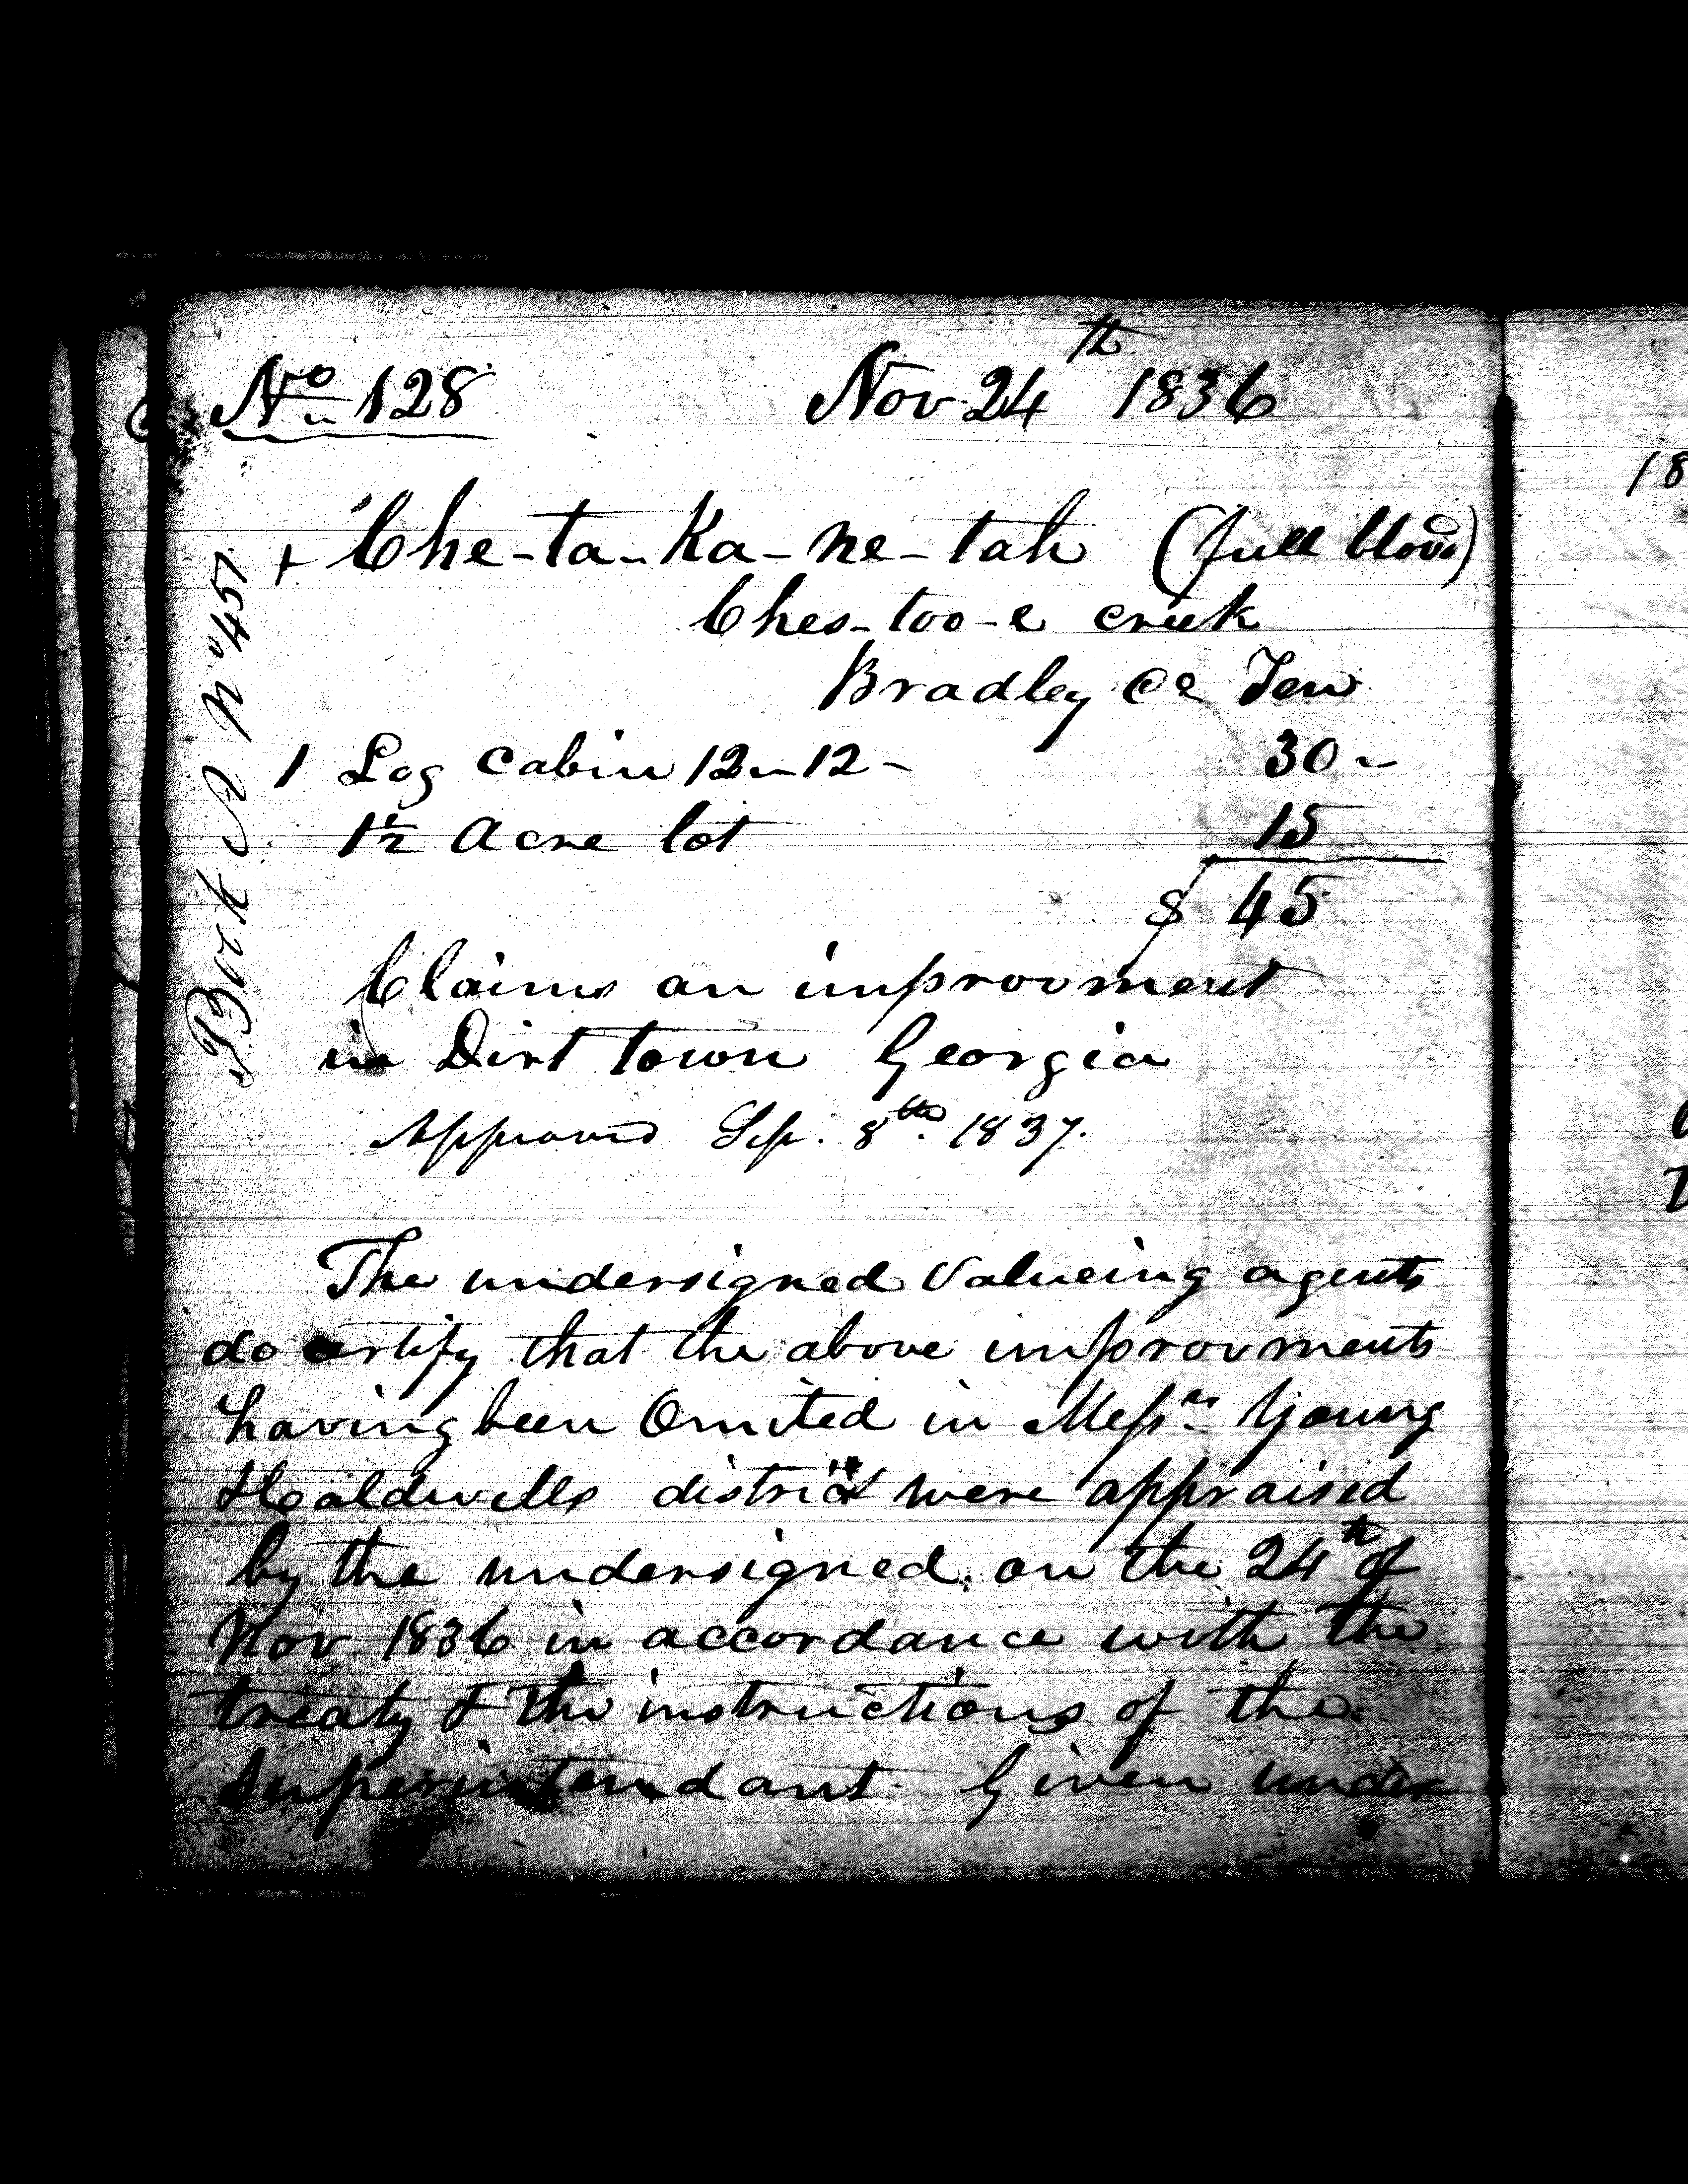 No 128 Nov 24th 1836
+ Che-ta-Ka-ne-tah (full blood)
Ches-too-e creek
Bradley Co Ten
1 Log Cabin 12-12- 30-
1½ Acre lot 15
$ 45
Claims an improovment
in Dirt town Georgia
Approved Sep. 8th. 1837.
Book A No 457
The undersigned Valueing agents
do certify that the above improovments
having been Omited in Messrs Young
& Caldwells district were appraised
by the undersigned on the 24th of
Nov 1836 in accordance with the
treaty & the instructions of the
Superintendant Given under
18